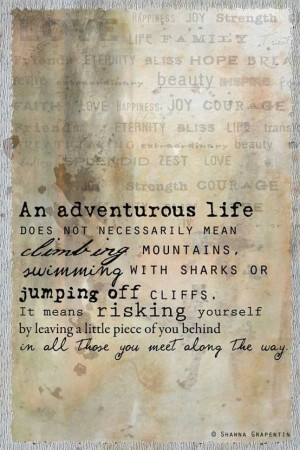 HAPPINESS JOY Strength
LOVE LIFE FAMILY
Friends ETERNITY BLISS HOPE
extraordinary beauty INSPIRE
FAITH LOVE HAPPINESS JOY COURAGE
Friends ETERNITY BLISS LIFE
extraordinary beauty
SPLENDID ZEST LOVE
Strength COURAGE
An adventurous life
DOES NOT NECESSARILY MEAN
climbing MOUNTAINS,
swimming WITH SHARKS OR
jumping off CLIFFS.
It means risking yourself
by leaving a little piece of you behind
in all those you meet along the way.
© SHAWNA GRAPENTIN